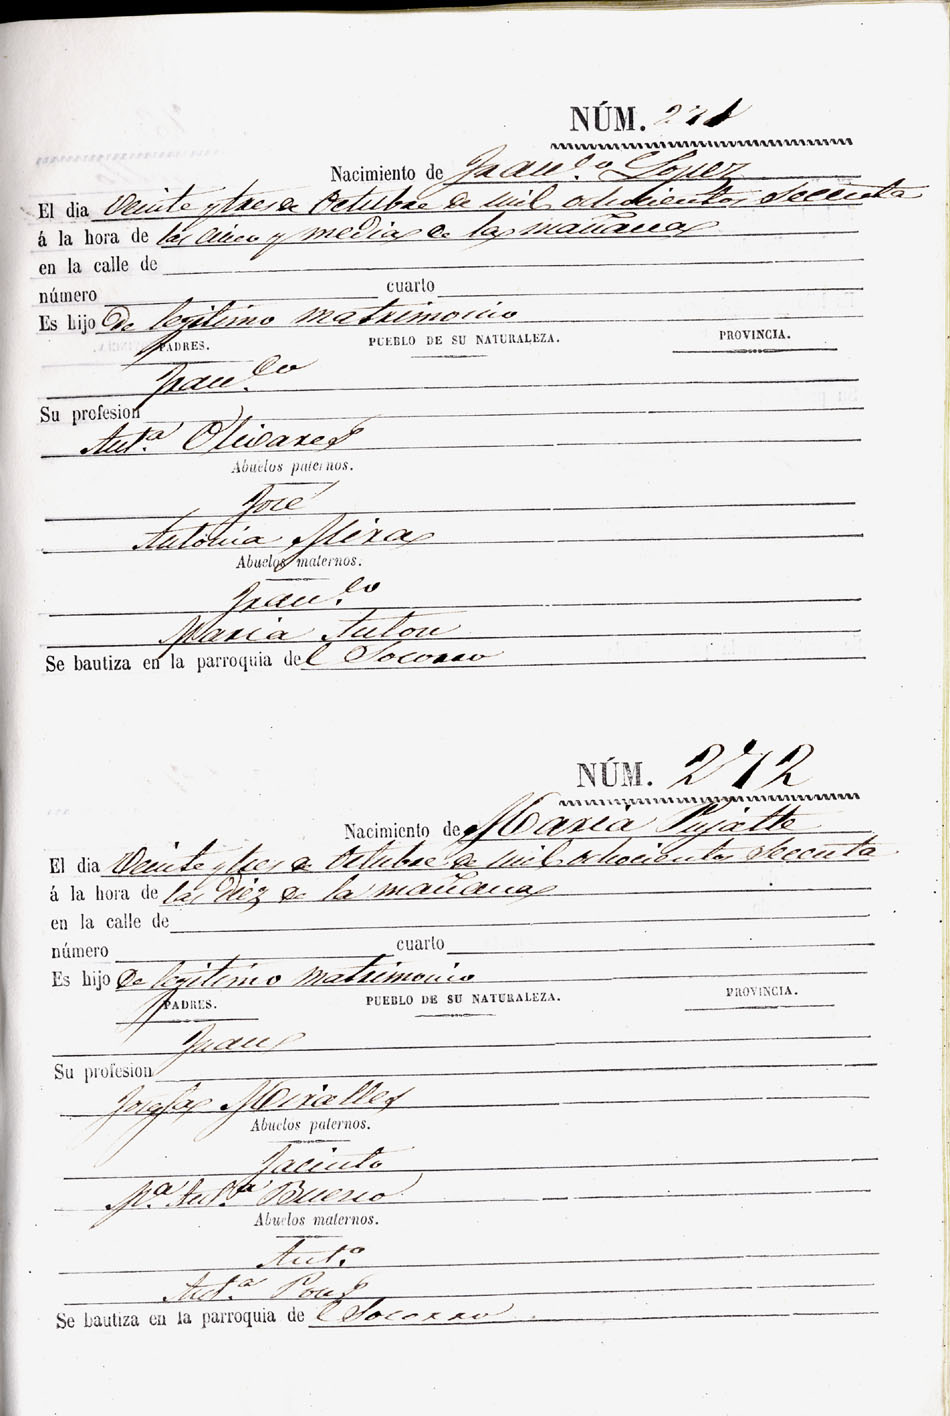 NÚM. 271
Nacimiento de Fran.co Lopez
El dia veinte y tres de Octubre de mil ochocientos secenta
á la hora de las cinco y media de la mañana
en la calle de
número cuarto
Es hijo de legitimo matrimonio
PADRES. PUEBLO DE SU NATURALEZA. PROVINCIA.
Fran.co
Su profesion
Ant.a Olivares
Abuelos paternos.
José
Antonia Mira
Abuelos maternos.
Fran.co
Maria Anton
Se bautiza en la parroquia del Socorro
NÚM. 272
Nacimiento de Maria Pujalte
El dia veinte y tres de Octubre de mil ochocientos secenta
á la hora de las diez de la mañana
en la calle de
número cuarto
Es hijo de legitimo matrimonio
PADRES. PUEBLO DE SU NATURALEZA. PROVINCIA.
Juan
Su profesion
Josefa Miralles
Abuelos paternos.
Jacinto
M.a Ant.a Bueno
Abuelos maternos.
Ant.o
Ant.a Pons
Se bautiza en la parroquia de l Socorro